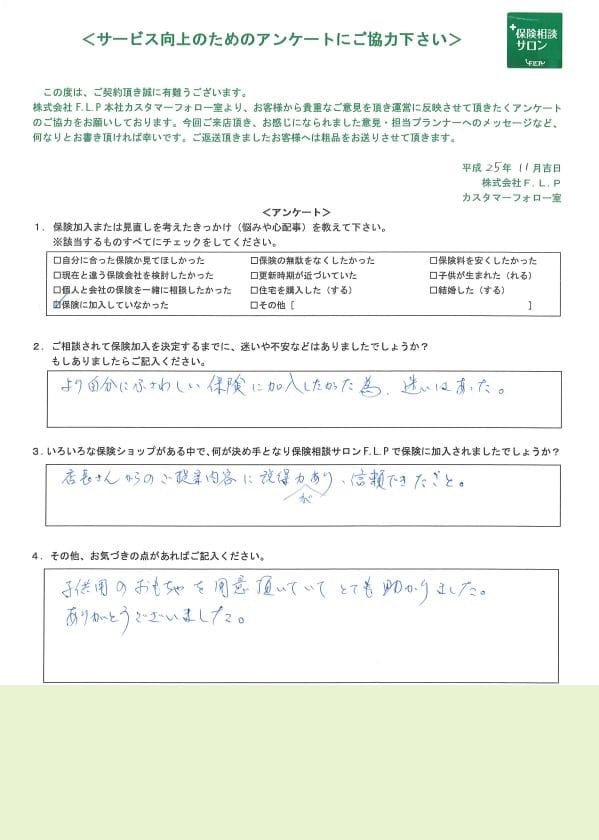 ＜サービス向上のためのアンケートにご協力下さい＞
+保険相談
サロン
F.L.P
この度は、ご契約頂き誠に有難うございます。
株式会社F.L.P本社カスタマーフォロー室より、お客様から貴重なご意見を頂き運営に反映させて頂きたくアンケート
のご協力をお願いしております。今回ご来店頂き、お感じになられました意見・担当プランナーへのメッセージなど、
何なりとお書き頂ければ幸いです。ご返送頂きましたお客様へは粗品をお送りさせて頂きます。
平成 25年 11月吉日
株式会社F.L.P
カスタマーフォロー室
＜アンケート＞
1．保険加入または見直しを考えたきっかけ（悩みや心配事）を教えて下さい。
※該当するものすべてにチェックをしてください。
□自分に合った保険か見てほしかった □保険の無駄をなくしたかった □保険料を安くしたかった
□現在と違う保険会社を検討したかった □更新時期が近づいていた □子供が生まれた（れる）
□個人と会社の保険を一緒に相談したかった □住宅を購入した（する） □結婚した（する）
☑保険に加入していなかった □その他［ ］
2．ご相談されて保険加入を決定するまでに、迷いや不安などはありましたでしょうか？
もしありましたらご記入ください。
より自分にふさわしい保険に加入したかった為、迷いはあった。
3．いろいろな保険ショップがある中で、何が決め手となり保険相談サロンF.L.Pで保険に加入されましたでしょうか？
店長さんからのご提案内容に説得力があり、信頼できたこと。
4．その他、お気づきの点があればご記入ください。
子供用のおもちゃを用意頂いていてとても助かりました。
ありがとうございました。